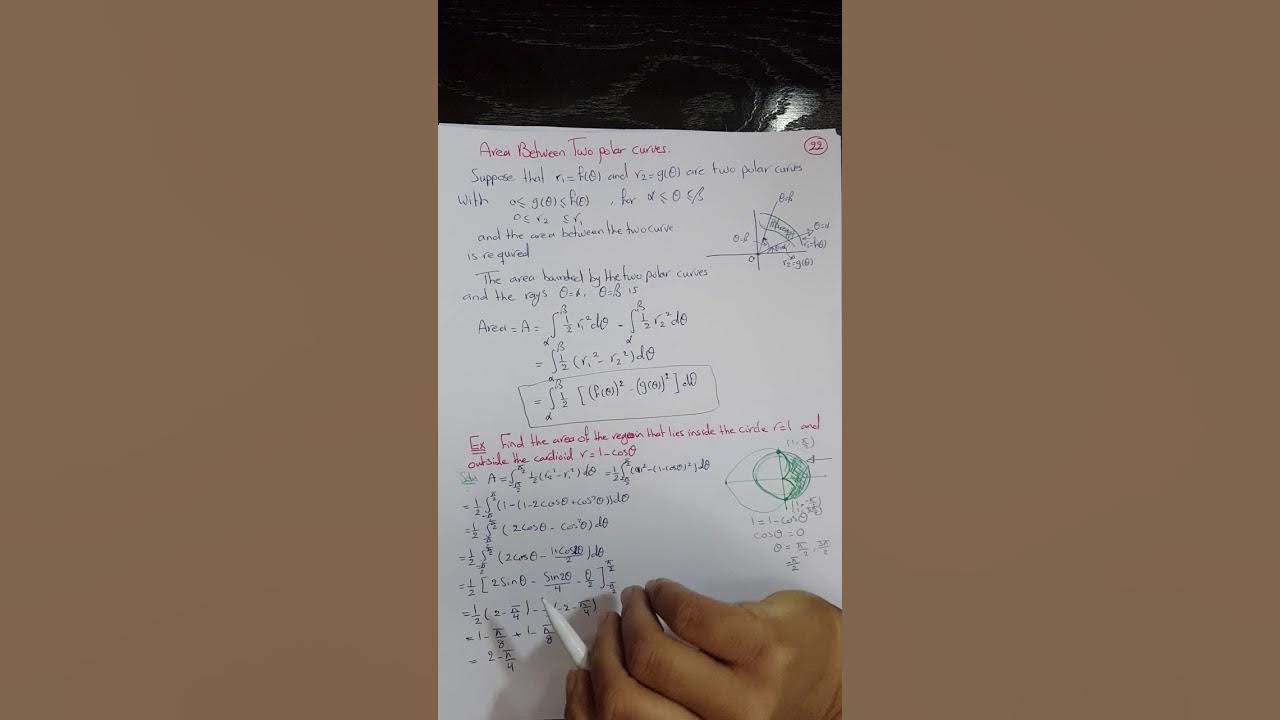 Area Between Two polar curves.
22
Suppose that r₁=f(θ) and r₂=g(θ) are two polar curves
with 0≤ g(θ)≤f(θ) , for α≤θ≤β
0≤ r₂ ≤r₁
and the area between the two curve
is required
θ=β
θ=α
r₁=f(θ)
r₂=g(θ)
O
The area bounded by the two polar curves
and the rays θ=α, θ=β is
Area = A = ∫_α^β ½ r₁² dθ - ∫_α^β ½ r₂² dθ
= ∫_α^β ½ (r₁² - r₂²) dθ
= ∫_α^β ½ [(f(θ))² - (g(θ))²] dθ
Ex Find the area of the regoin that lies inside the circle r=1 and
outside the cardioid r=1-cosθ
Soln A = ∫_{-π/2}^{π/2} ½(r₂²-r₁²) dθ = ½∫_{-π/2}^{π/2} ((1)²-(1-cosθ)²) dθ
= ½ ∫_{-π/2}^{π/2} (1-(1-2cosθ+cos²θ)) dθ
= ½ ∫_{-π/2}^{π/2} (2cosθ - cos²θ) dθ
= ½ ∫_{-π/2}^{π/2} (2cosθ - (1+cos2θ)/2) dθ
= ½ [2sinθ - sin2θ/4 - θ/2]_{-π/2}^{π/2}
= ½ (2-π/4) - (-2-π/4)
= 1 - π/8 + 1 - π/8
= 2 - π/4
(1, π/2)
(1, -π/2)
(1, 3π/2)
1 = 1-cosθ
cosθ = 0
θ = π/2, 3π/2
= π/2